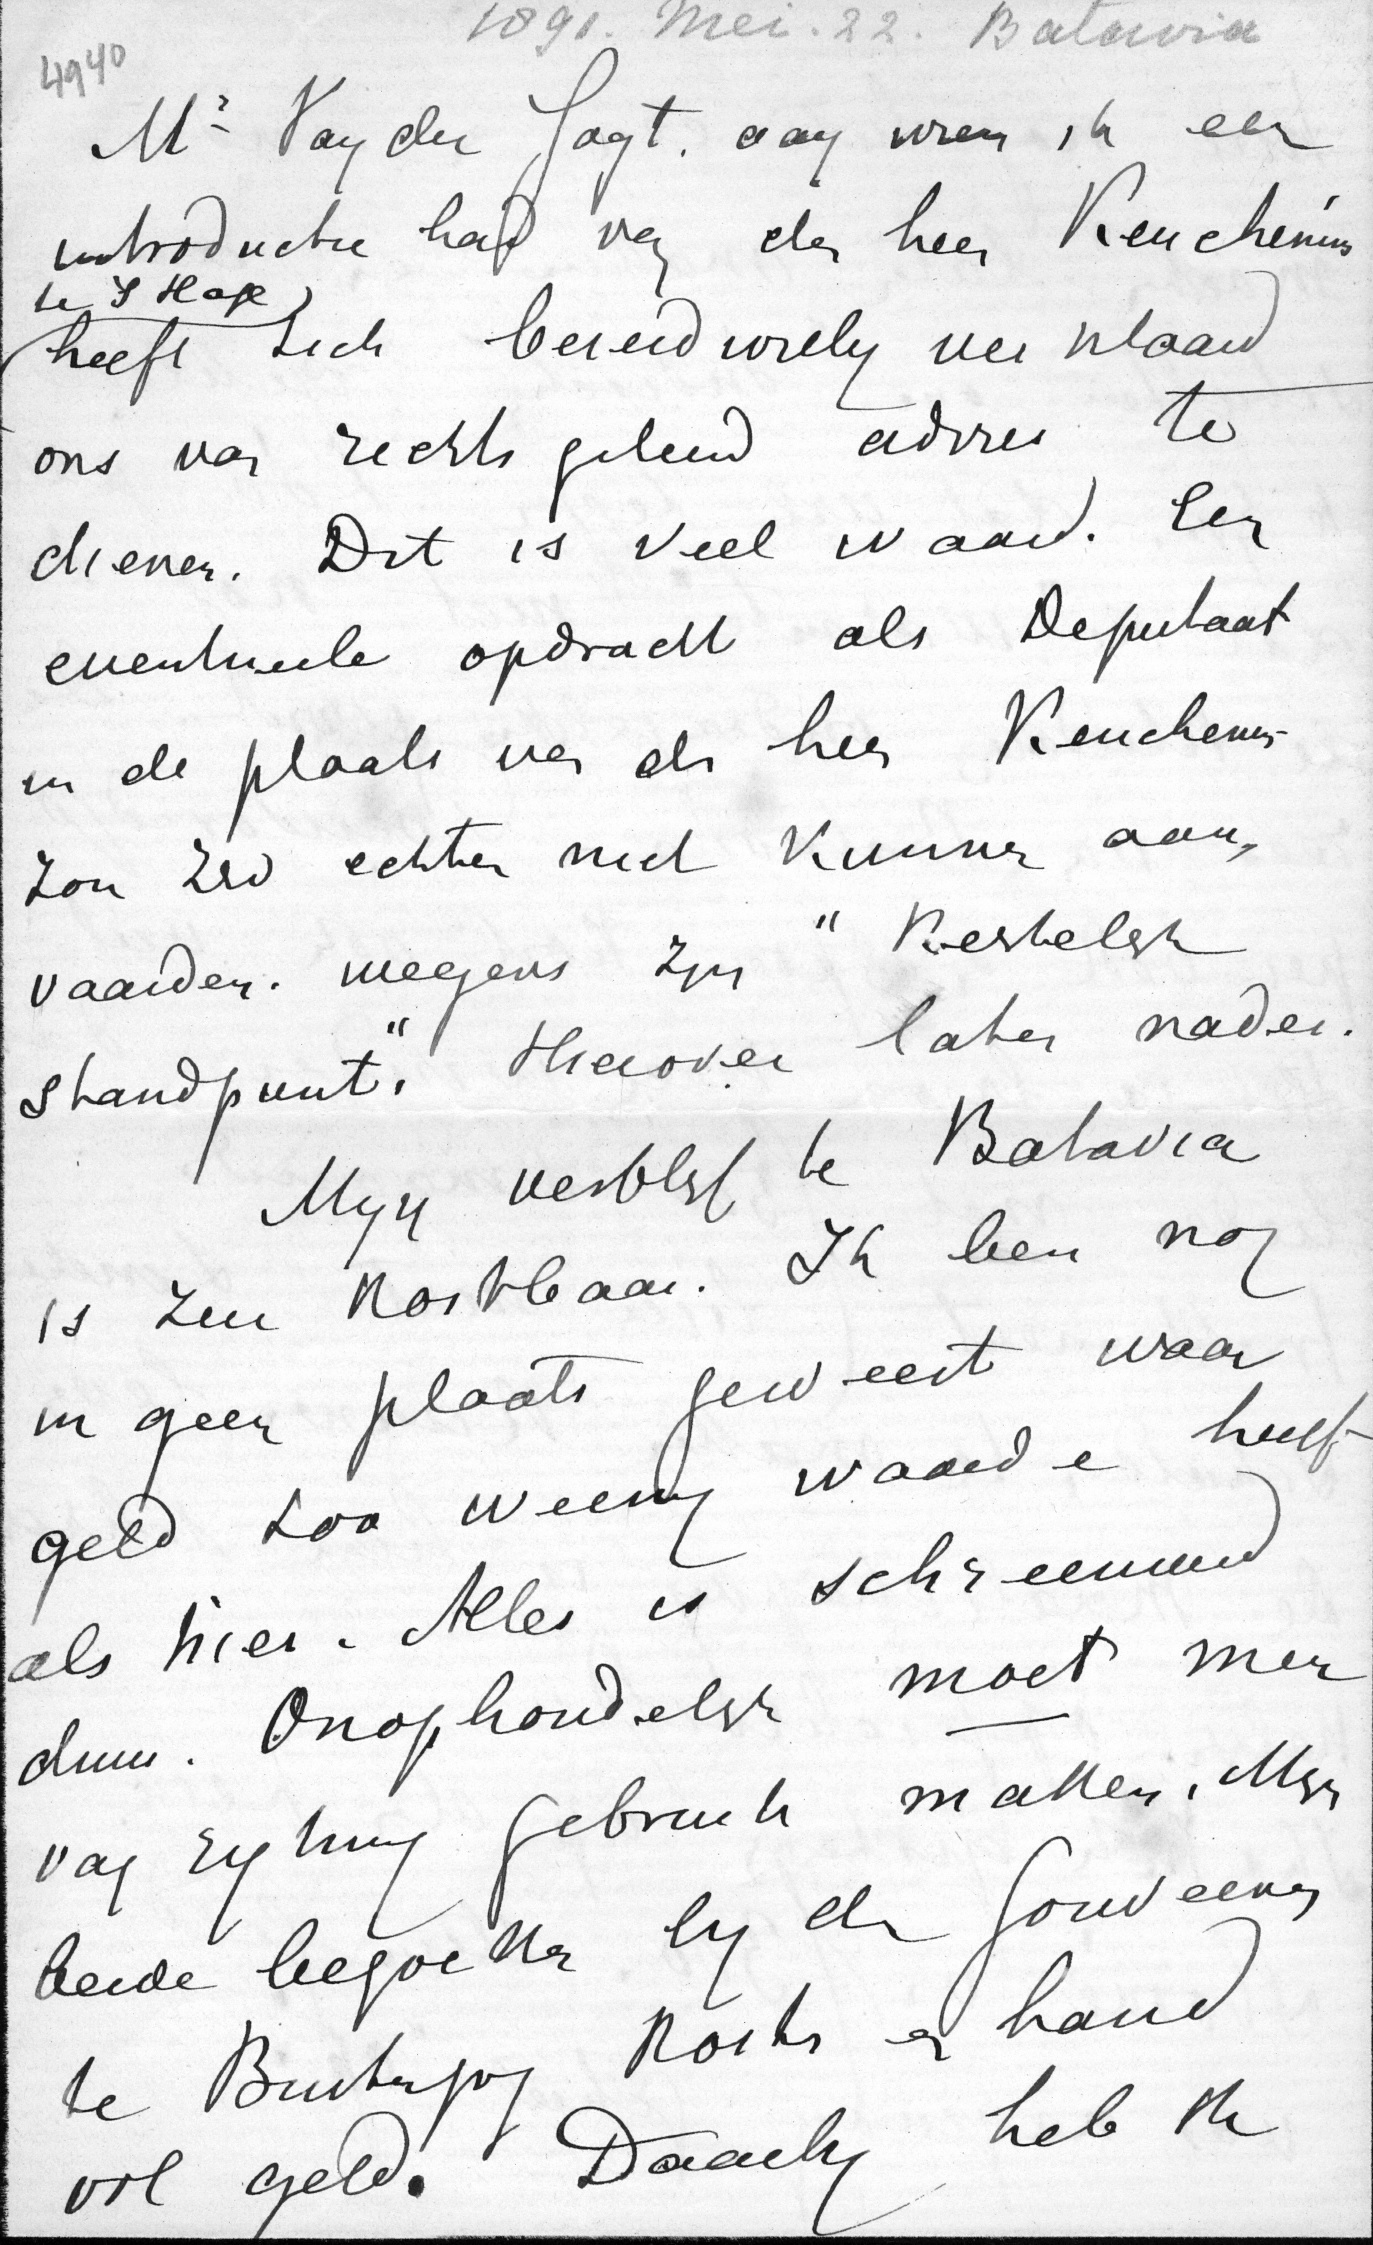 1891. Mei. 22. Batavia
4940
Mr Van der Jagt. aan wien ik een
introductie had van den heer Keuchenius
te 's Hage
heeft zich bereidwillig verklaard
ons van rechtsgeleerd advies te
dienen. Dit is veel waard. Een
eventueele opdracht als Deputaat
in de plaats van den heer Keuchenius
zou ZEd echter niet kunnen aan,
vaarden. wegens zijn "Kerkelijk
standpunt". Hierover later nader.
Mijn verblijf te Batavia
is zeer kostbaar. Ik ben nog
in geen plaats geweest waar
geld zoo weinig waarde heeft
als hier. Alles is schreeuwend
duur. Onophoudelijk moet men
van rijtuig gebruik maken. Mijn
beide bezoeken bij den Gouverneur
te Buitenzorg kostten hand
vol geld. Daarbij heb ik